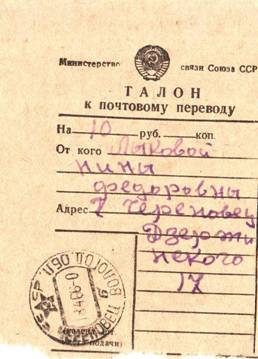 Министерство связи Союза ССР
ТАЛОН
к почтовому переводу
На 10 руб. коп.
От кого Лыковой
нины
федоровны
Адрес г Череповец
Дзержи
нского
17